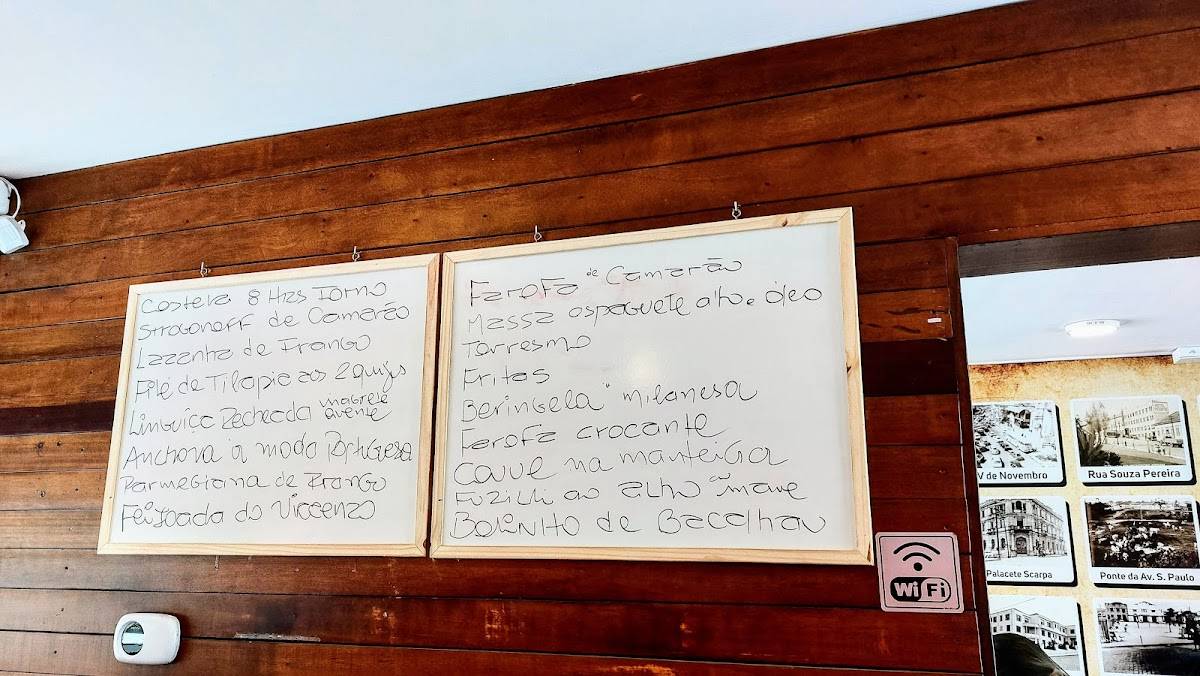 Costela 8 Hrs Forno
Strogonoff de Camarão
Lazanha de Frango
Filé de Tilapia aos 2 quijs
Linguiça Recheada magrete avente
Anchova à moda Portuguesa
Parmegiana de Frango
Feijoada do Vicenzo
Farofa de Camarão
Massa aspaguete alho e óleo
Torresmo
Fritas
Beringela " milanesa
Farofa crocante
Couve na manteiga
Fuzilli ao alho
Bolinito de Bacalhau
WiFi
V de Novembro
Rua Souza Pereira
Palacete Scarpa
Ponte da Av. S. Paulo